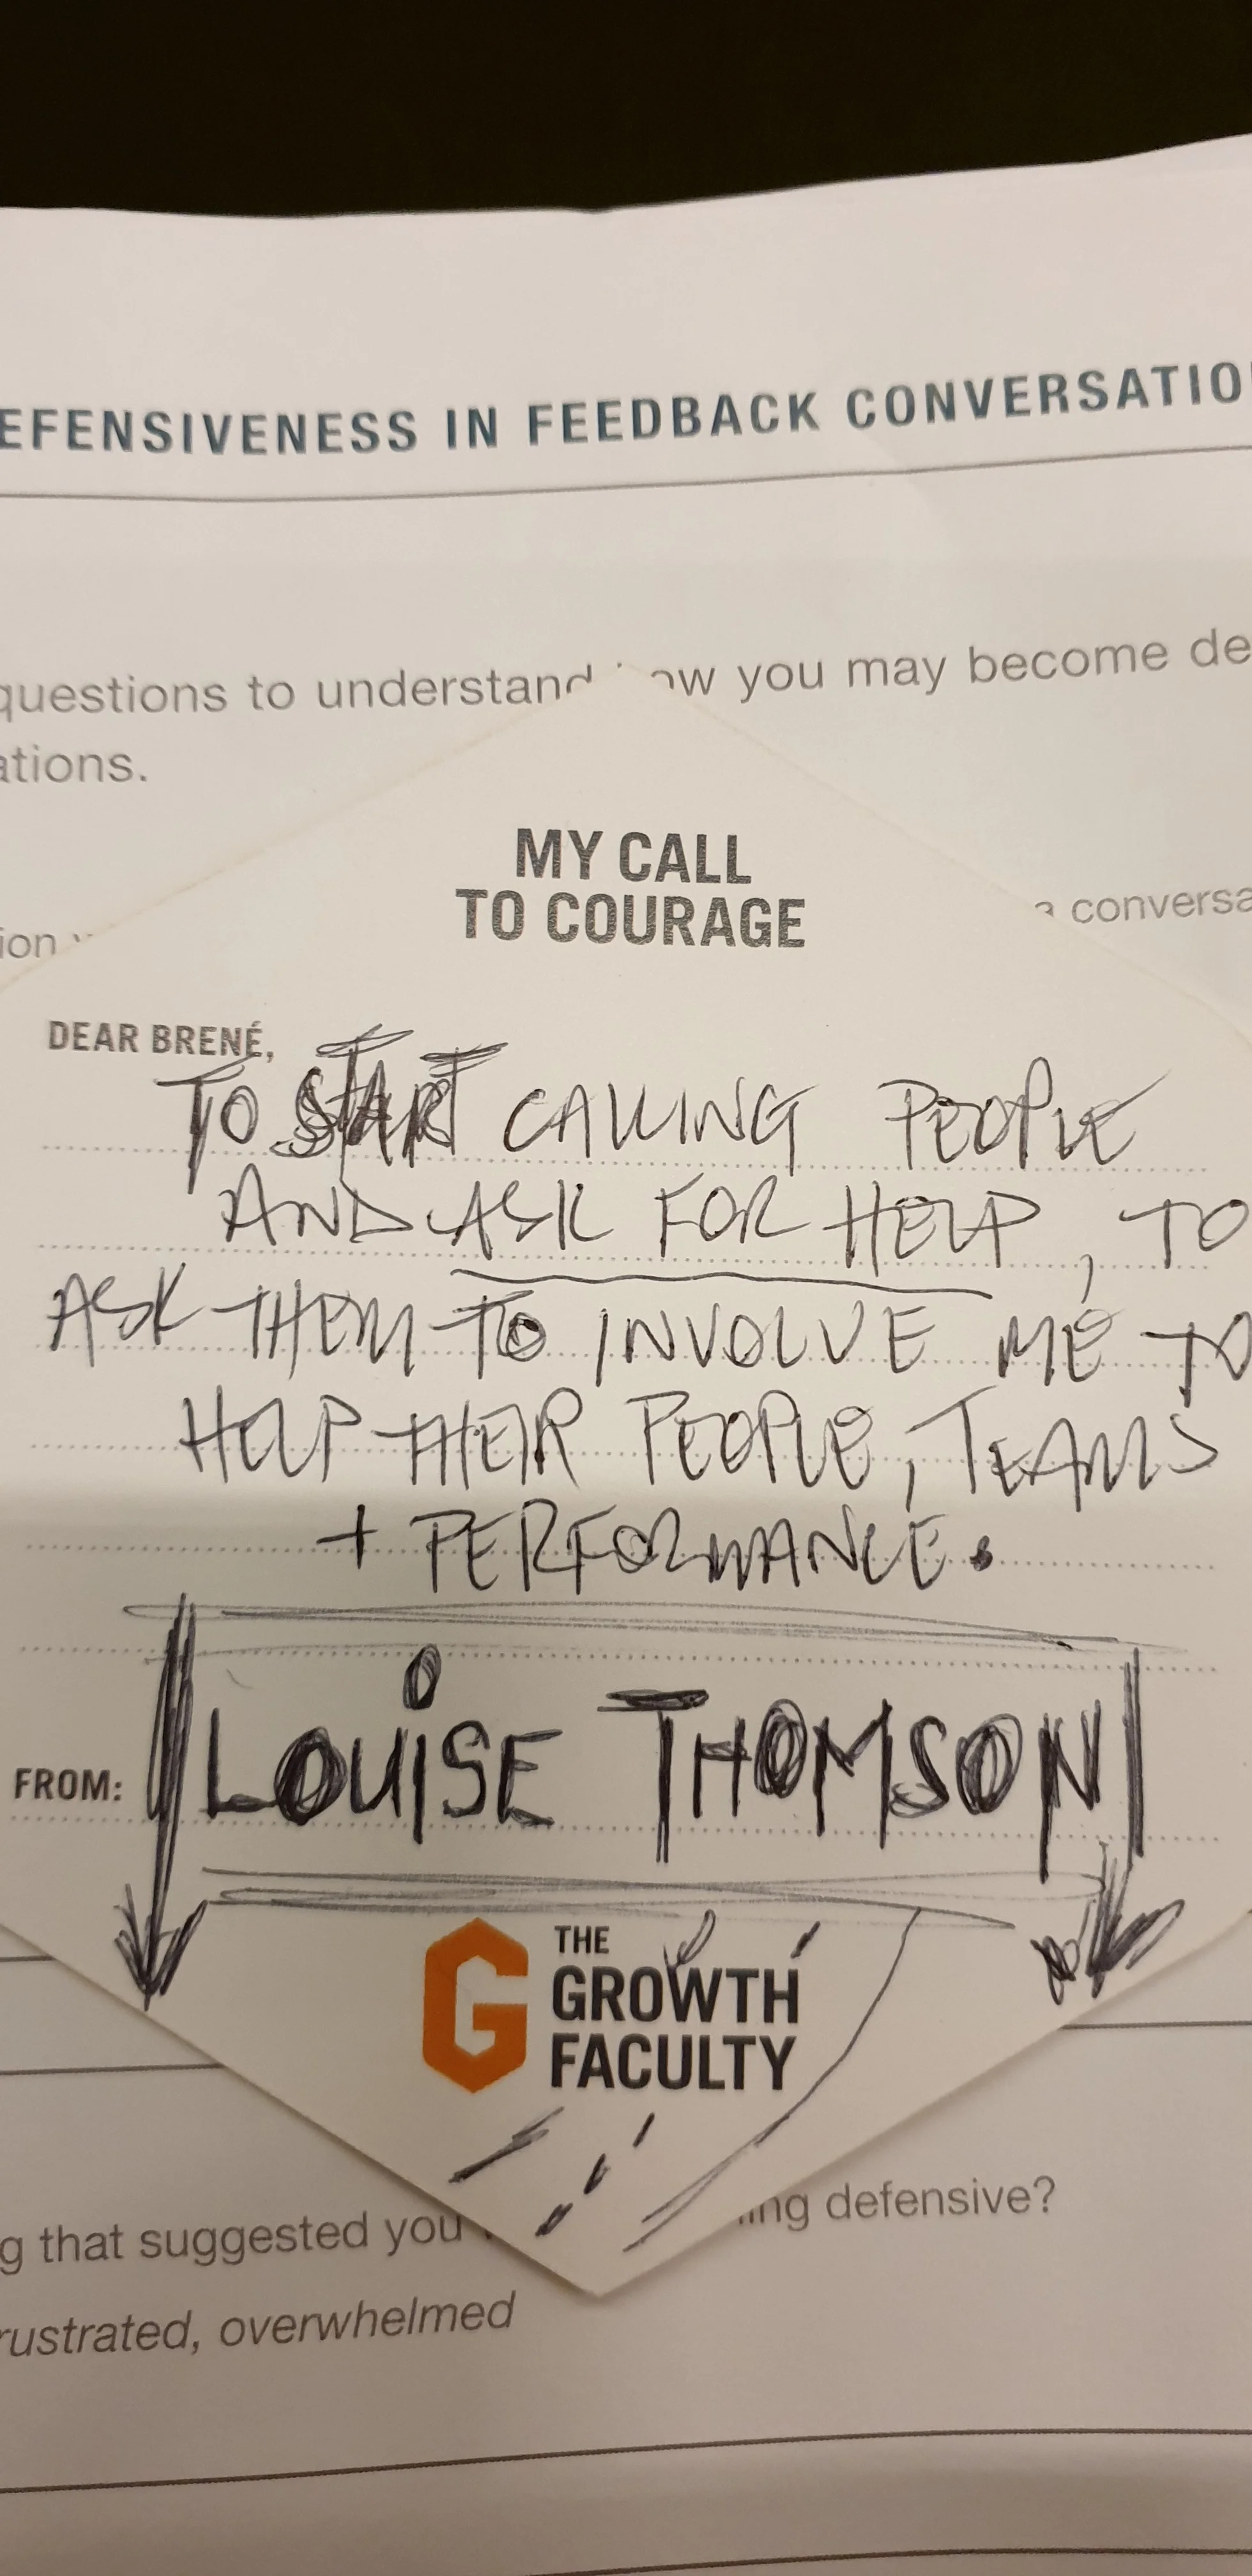 EFENSIVENESS IN FEEDBACK CONVERSATIO
questions to understand how you may become de
ations.
MY CALL
TO COURAGE
ion
a conversa
DEAR BRENÉ,
TO START CALLING PEOPLE
AND ASK FOR HELP, TO
ASK THEM TO INVOLVE ME TO
HELP THEIR PEOPLE, TEAMS
+ PERFORMANCE.
FROM: LOUISE THOMSON
THE
GROWTH
FACULTY
g that suggested you ing defensive?
rustrated, overwhelmed